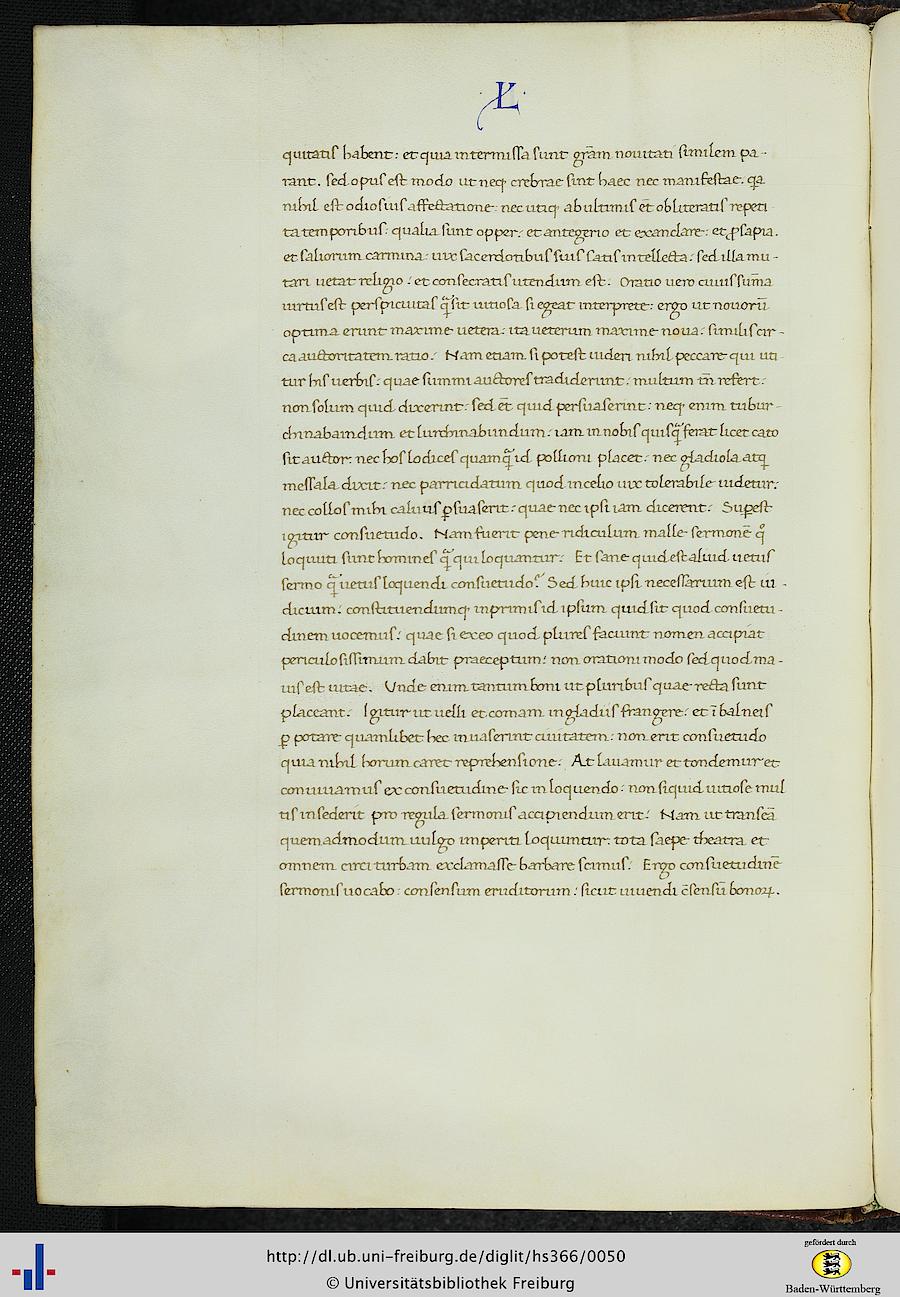 L
quitatis habent: et quia intermissa sunt grām nouitati similem pa-
rant. sed opus est modo ut neq; crebrae sint haec nec manifestae. qa
nihil est odiosius affectatione: nec utiq; ab ultimis et̄ obliteratis repeti-
ta temporibus: qualia sunt opper: et antegerio et exanclare: et ꝓsapia.
et saliorum carmina: uix sacerdotibus suis satis intellecta: sed illa mu-
tari uetat religio: et consecratis utendum est: Oratio uero cuius sum̄a
uirtus est perspicuitas q̄ sit uitiosa si egeat interprete: ergo ut nouorū
optima erunt maxime uetera: ita ueterum maxime noua: similis cir-
ca auctoritatem ratio: Nam etiam si potest uideri nihil peccare qui uti-
tur his uerbis: quae summi auctores tradiderunt: multum tn̄ refert:
non solum quid dixerint: sed et̄ quid persuaserint: neq; enim tubur-
chinabundum et lurchinabundum: iam in nobis quisq̄ ferat licet cato
sit auctor: nec hos lodices quamq̄ id pollioni placet: nec gladiola atq;
messala dixit: nec parricidatum quod in celio uix tolerabile uidetur:
nec collos mihi caluus ꝑsuaserit: quae nec ipsi iam dicerent: Suꝑest
igitur consuetudo. Nam fuerit pene ridiculum malle sermonē qͦ
loquuti sunt homines q̄ qui loquantur: Et sane quid est aliud uetus
sermo q̄ uetus loquendi consuetudo? Sed huic ipsi necessarium est iu-
dicium: constituendumq; inprimis id ipsum quid sit quod consuetu-
dinem uocemus: quae si ex eo quod plures faciunt nomen accipiat
periculosissimum dabit praeceptum: non orationi modo sed quod ma-
ius est uitae. Unde enim tantum boni ut pluribus quae recta sunt
placeant: Igitur ut uelli et comam in gladus frangere: et ī balneis
ꝑ potare quamlibet hec inuaserint ciuitatem: non erit consuetudo
quia nihil horum caret reprehensione: At lauamur et tondemur et
conuiuamus ex consuetudine sic in loquendo: non siquid uitiose mul
tis insederit pro regula sermonis accipiendum erit: Nam ut transeā
quemadmodum uulgo imperiti loquuntur: tota saepe theatra et
omnem circi turbam exclamasse barbare scimus: Ergo consuetudinē
sermonis uocabo: consensum eruditorum: sicut uiuendi c̄sensū bonoꝝ.
http://dl.ub.uni-freiburg.de/diglit/hs366/0050
© Universitätsbibliothek Freiburg
gefördert durch
Baden-Württemberg